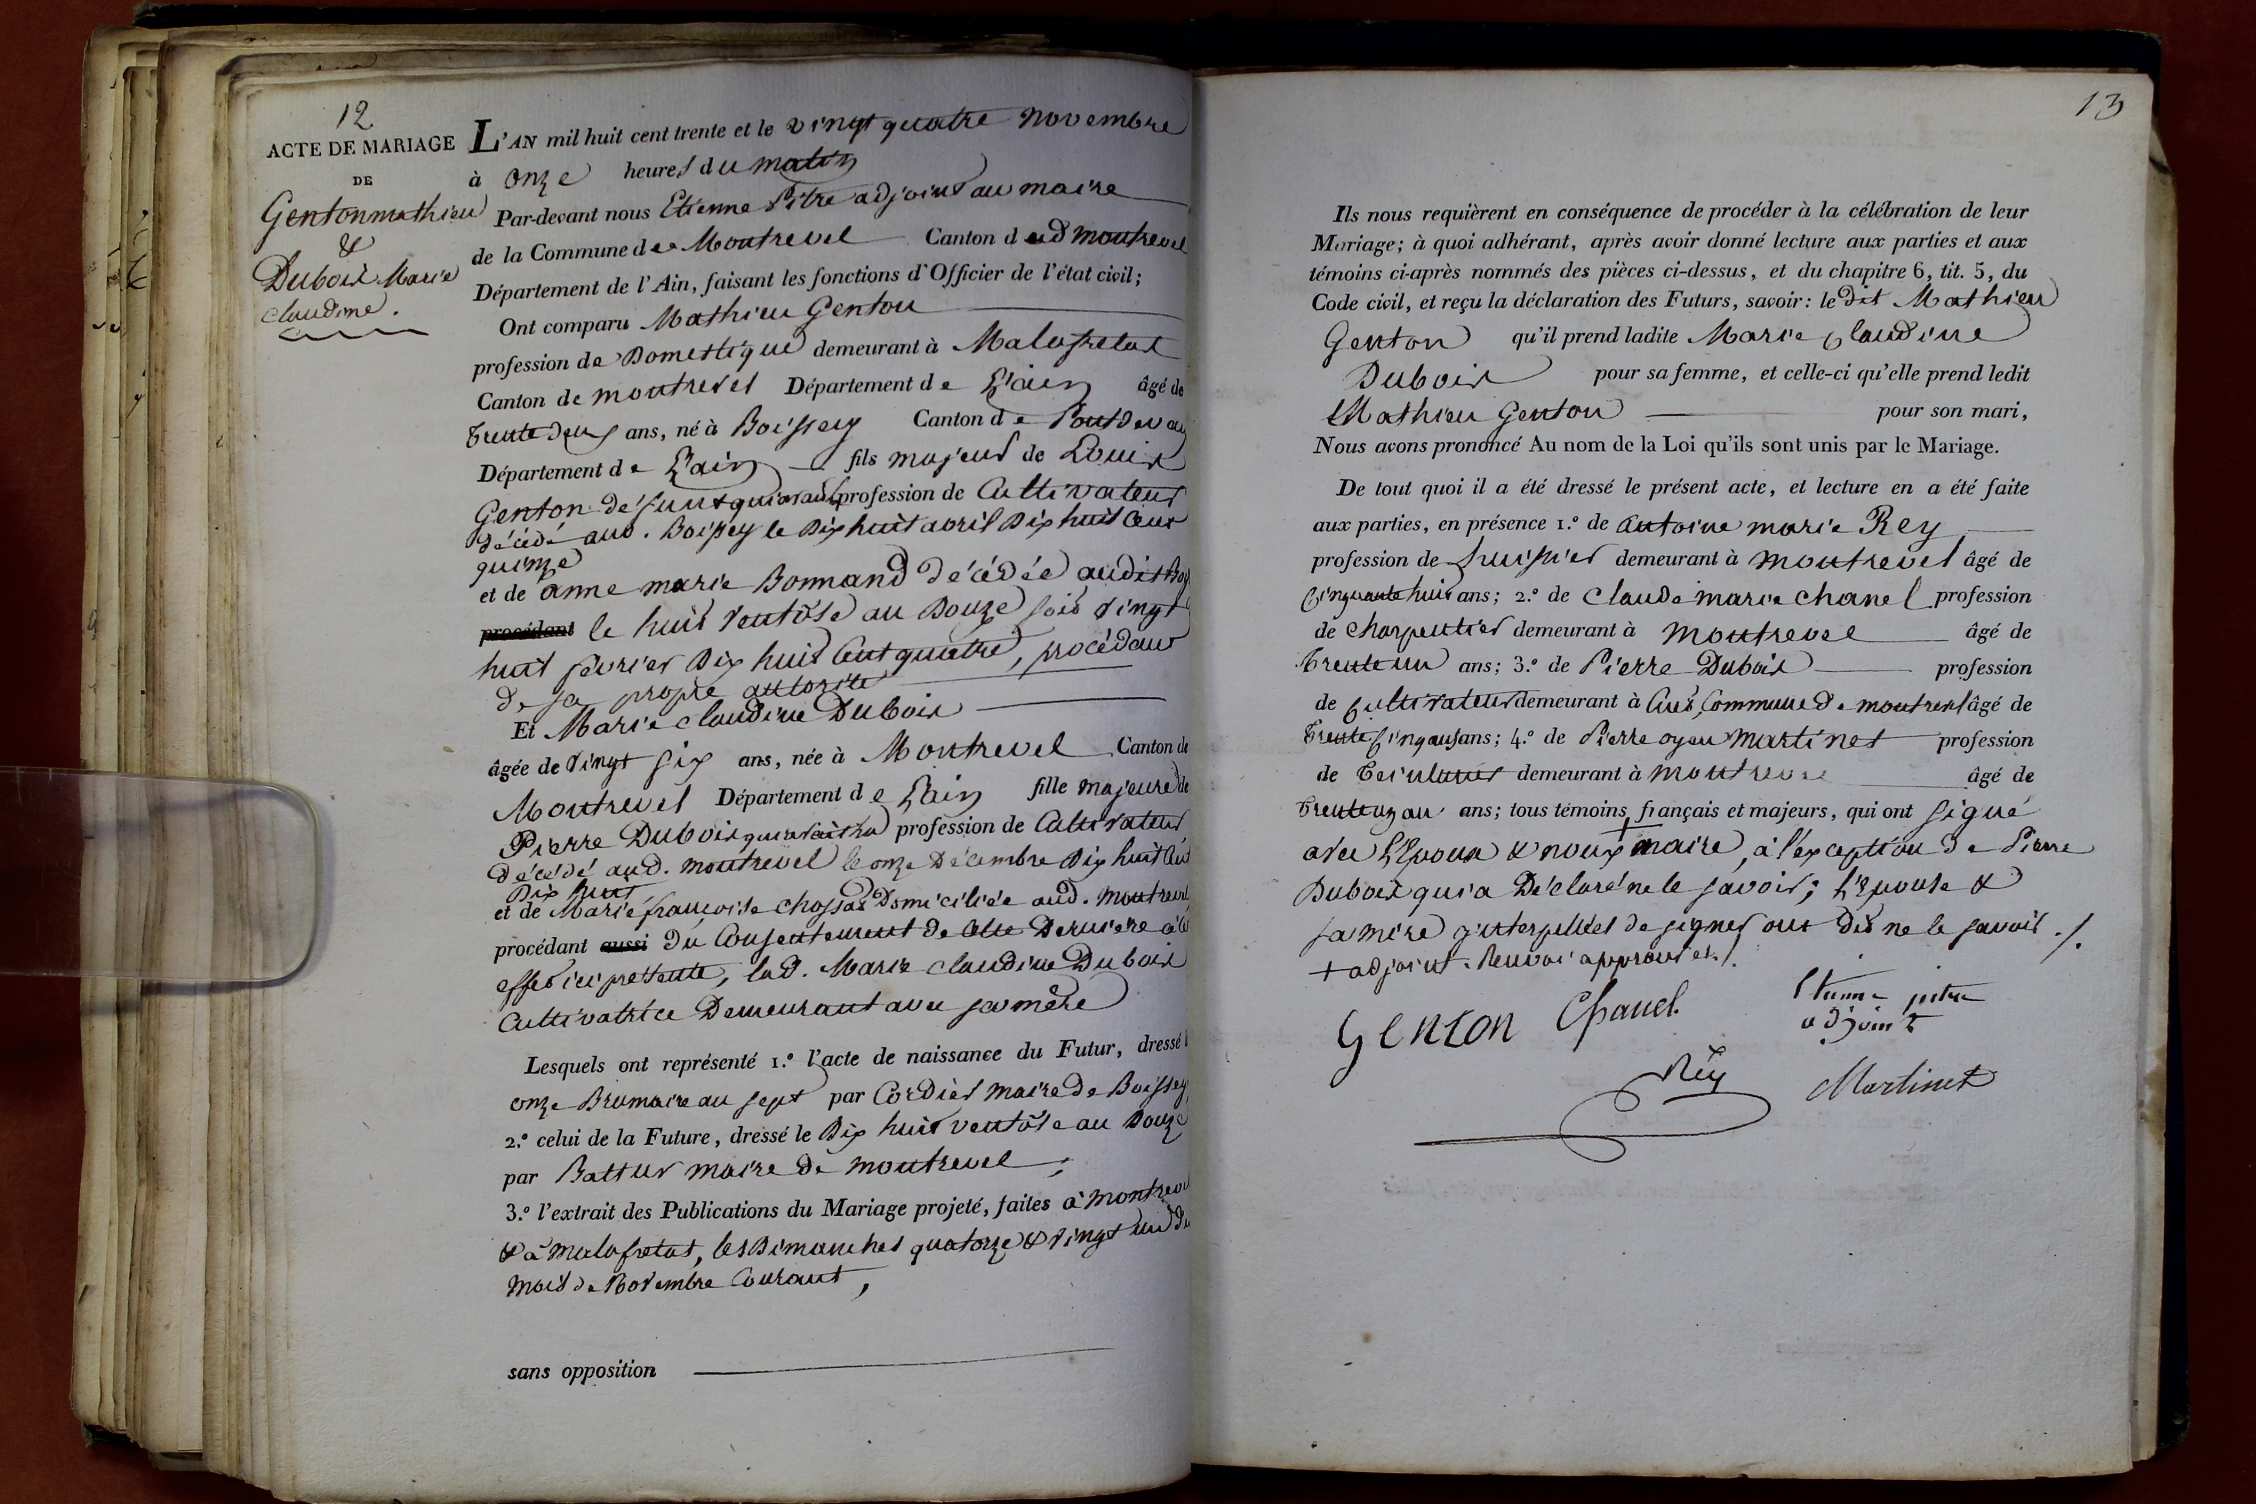 12
ACTE DE MARIAGE
DE
Genton mathieu
&
Dubois Marie
claudine.
L'AN mil huit cent trente et le vingt quatre novembre
à onze heures du matin
Par-devant nous Etienne Pitre adjoint au maire
de la Commune de Montrevel Canton dud montrevel
Département de l'Ain, faisant les fonctions d'Officier de l'état civil;
Ont comparu Mathieu Genton
profession de Domestique demeurant à Malafretat
Canton de montrevel Département de L'ain âgé de
trente deux ans, né à Boissey Canton de Pontdevaux
Département de L'ain fils majeur de Louis
Genton défunt qui avait profession de Cultivateur
décédé aud. Boissey le Dix huit avril Dix huit Cent
quinze
et de anne marie Bonnand décédée audit Boissey
procédant le huit ventôse an Douze soit vingt
huit fevrier Dix huit Cent quatre, procédant
de sa propre autorité
Et Marie claudine Dubois
âgée de vingt six ans, née à Montrevel Canton de
Montrevel Département de L'ain fille majeure de
Pierre Dubois qui avait profession de Cultivateur
décédé aud. montrevel le onze Décembre Dix huit Cent
Dix huit
et de Marie françoise chossat Domiciliée aud. Montrevel
procédant aussi du Consentement de cette Derniere à cet
effet ici présente, lad. Marie claudine Dubois
Cultivatrice Demeurant avec sa mère
Lesquels ont représenté 1.º l'acte de naissance du Futur, dressé le
onze Brumaire an sept par Cordier maire de Boissey
2.º celui de la Future, dressé le Dix huit ventôse an Douze
par Battur maire de montrevel;
3.º l'extrait des Publications du Mariage projeté, faites à Montrevel
& à malafretat, les Dimanches quatorze & vingt un du
mois de Novembre Courant,
sans opposition
13
Ils nous requièrent en conséquence de procéder à la célébration de leur
Mariage; à quoi adhérant, après avoir donné lecture aux parties et aux
témoins ci-après nommés des pièces ci-dessus, et du chapitre 6, tit. 5, du
Code civil, et reçu la déclaration des Futurs, savoir: le dit Mathieu
Genton qu'il prend ladite Marie claudine
Dubois pour sa femme, et celle-ci qu'elle prend ledit
Mathieu Genton pour son mari,
Nous avons prononcé Au nom de la Loi qu'ils sont unis par le Mariage.
De tout quoi il a été dressé le présent acte, et lecture en a été faite
aux parties, en présence 1.º de antoine marie Rey
profession de huissier demeurant à montrevel âgé de
Cinquante huit ans; 2.º de Claude marie chanel profession
de charpentier demeurant à montrevel âgé de
trente un ans; 3.º de Pierre Dubois profession
de Cultivateur demeurant à Cuet, Commune de montrevel âgé de
trente Cinq ans ans; 4.º de Pierre oyen Martinet profession
de teinturier demeurant à montrevel âgé de
ans; tous témoins français et majeurs, qui ont signé
avec L'Epoux & nous + maire, à l'exception de Pierre
Dubois qui a Déclaré ne le savoir; L'Epouse &
sa mère interpellées de signer ont Dit ne le savoir ./.
+ adjoint. Renvoi approuvé ./.
Genton Chanel. Etienne pitre
adjoint
Rey Martinet